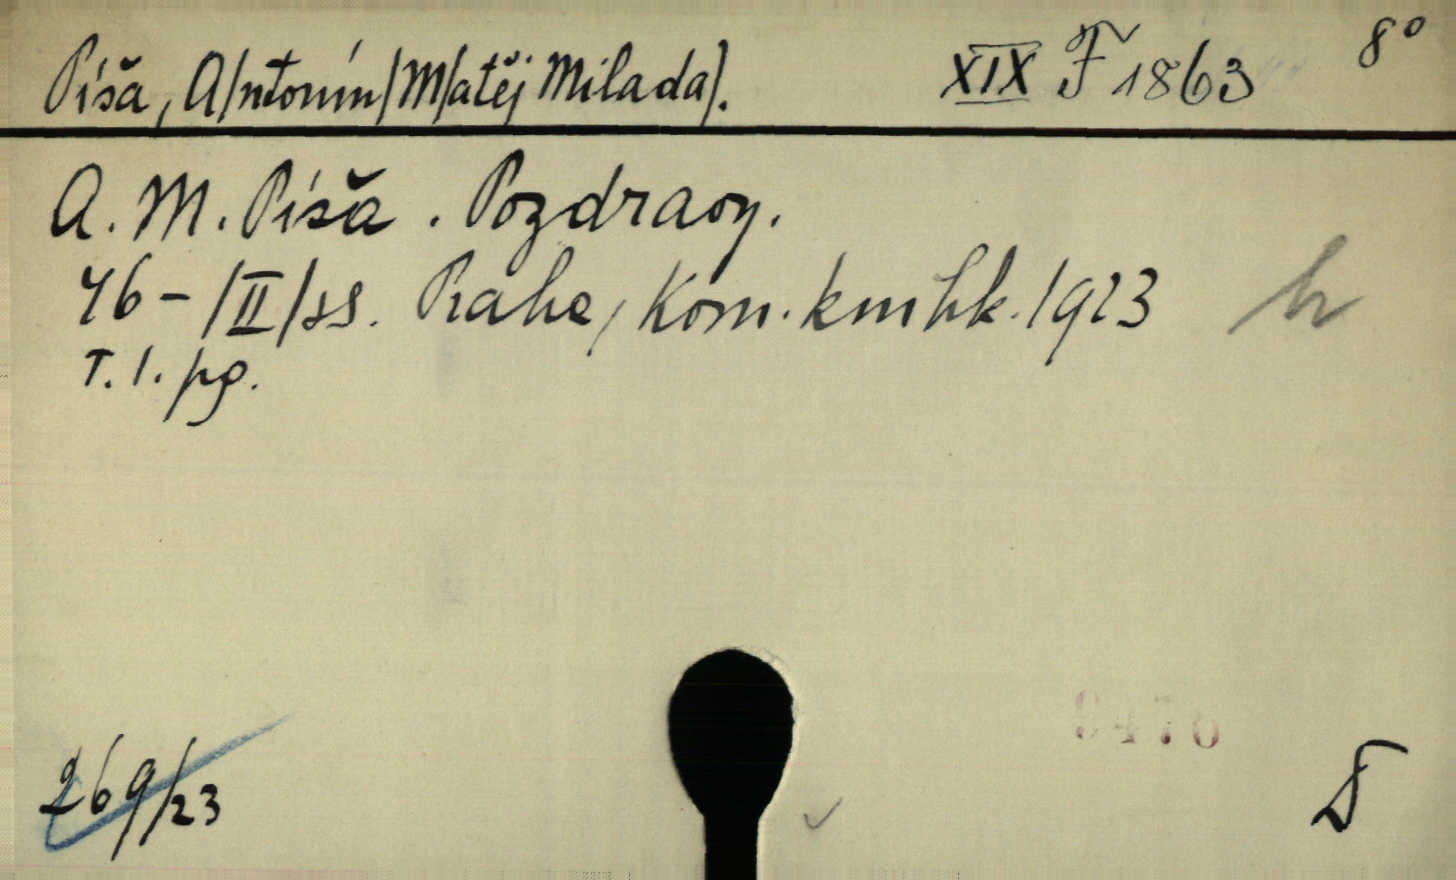 Píša, A/ntonín/M/atěj Milada/. XIX F 1863 8°
A. M. Píša. Pozdravy.
46 - /II/ ss. Praha, Kom. knihk. 1923 h
T. 1. pg.
269/23